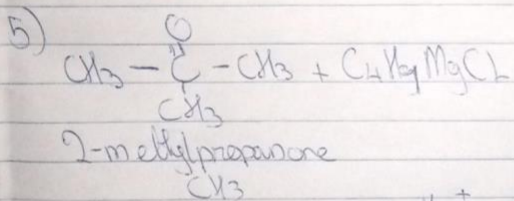 5)
O
CH3 - C - CH3 + C4H9MgCl
CH3
2-methylpropanone
CH3